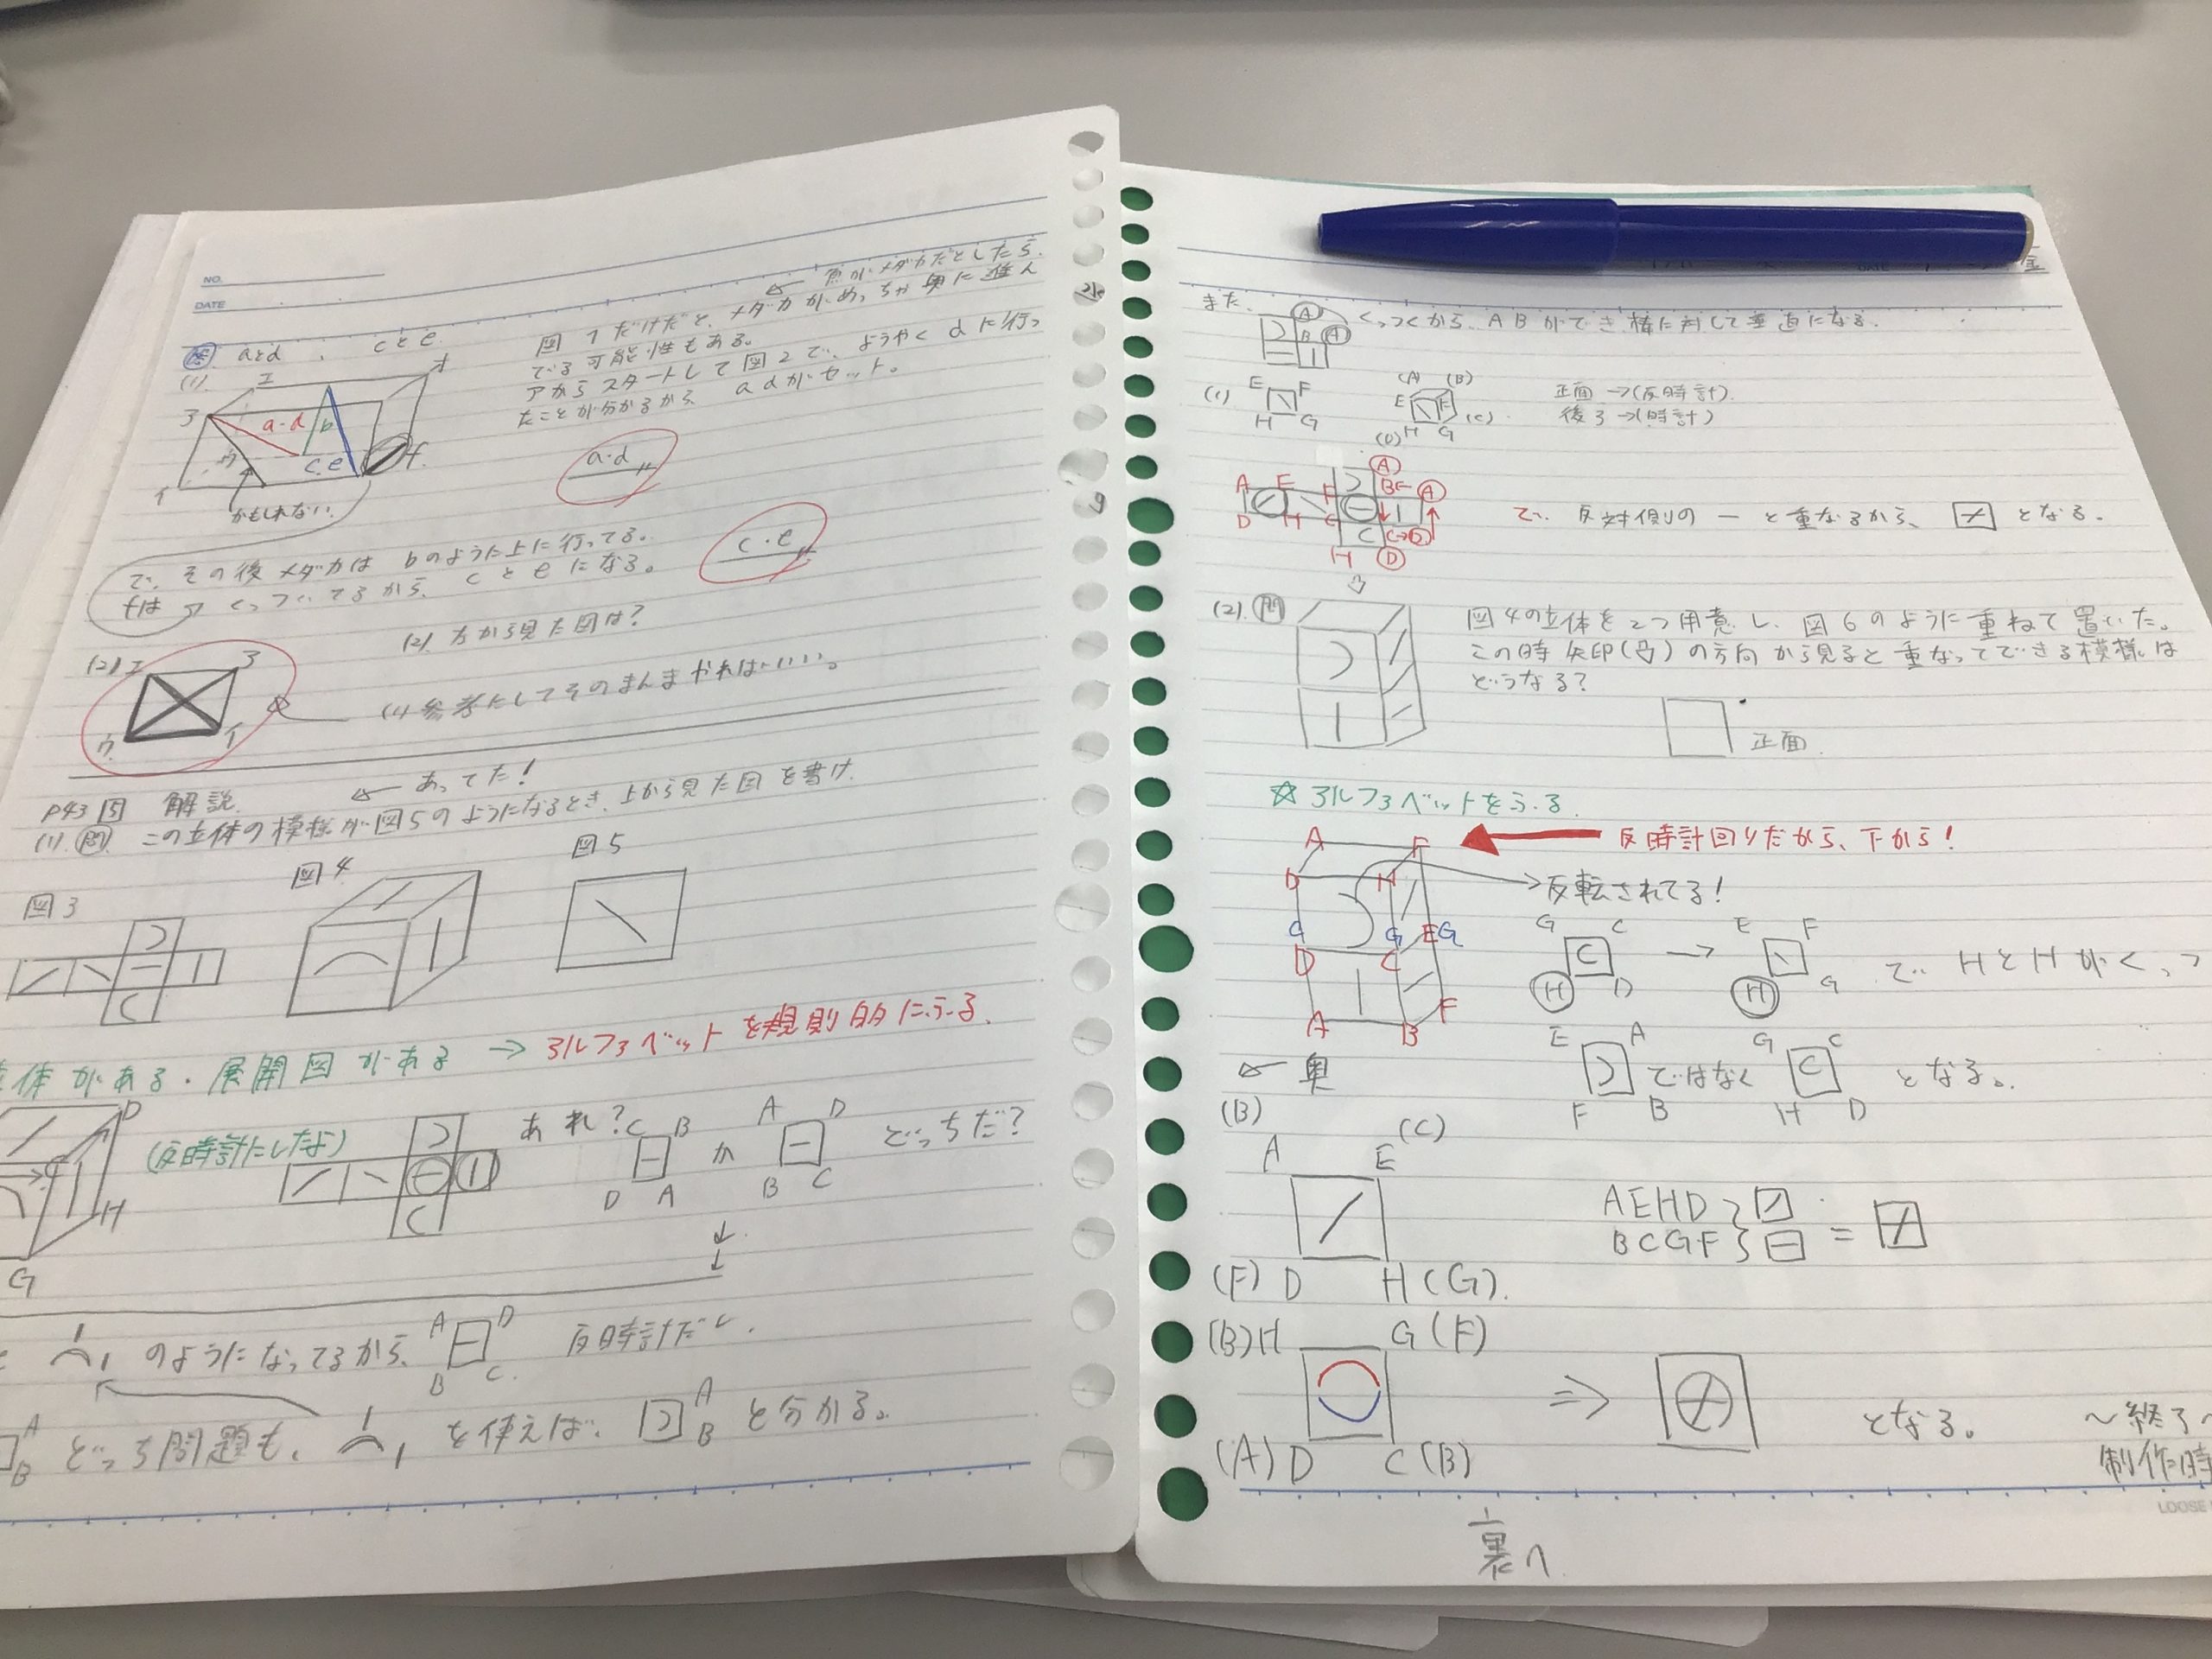 NO.
DATE
答 aとd , cとe
魚がメダカだとしたら、
図1だけだと、メダカがめっちゃ奥に進ん
でる可能性もある。
アからスタートして図2で、ようやくdに行っ
たことが分かるから adがセット。
(1)
ア エ オ
a・d b
c.e f.
イ
かもしれない。
a・d〃
で、その後メダカは bのように上に行ってる。
fは くっついてるから、cとeになる。
c・e〃
(2) 方から見た図は?
(2)エ ア
ウ イ
(1)参考にしてそのまんまやればいいい。
あってた!
P43 5 解説
(1) 問 この立体の模様が図5のようになるとき、上から見た図を書け
図3 図4 図5
体がある・展開図がある → アルファベットを規則的にふる。
D
H
G
(反時計にしたよ)
あれ? C B D A か A D B C どっちだ?
のようになってるから、 A D B C. 反時計だし、
A B どっち問題も、 を使えば、 A B と分かる。
DATE 金
また、 A B A くっつくから、ABができ棒に対して垂直になる。
(1) E F H G
(A) (B) E F (C) (D) H G
正面→(反時計)
後ろ→(時計)
A E F A
D H G
H D
で、反対側の一と重なるから、 となる。
(2). 問 図4の立体を2つ用意し、図6のように重ねて置いた。
この時矢印(凸)の方向から見ると重なってできる模様は
どうなる?
正面
☆アルファベットをふる
A F
D H
反時計回りだから、下から!
反転されてる!
A B F
G C H D → E F H G で HとHがくっつ
E A F B ではなく G C H D となる。
奥
(B) A E (C)
(F) D H (G).
AEHD
BCGF
=
(B)H G(F)
(A)D C(B)
⇒
となる。
～終了～
制作時
LOOSE
裏へ